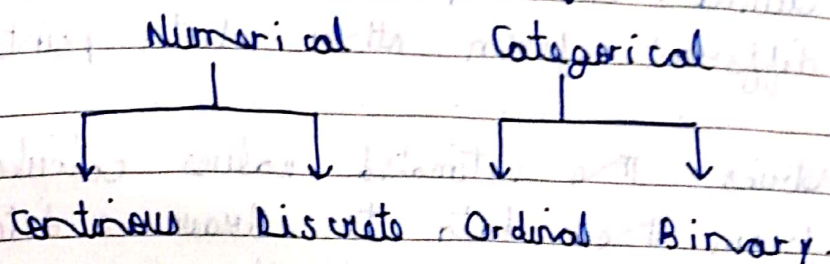 Numerical Categorical
Continous Discrete Ordinal Binary.